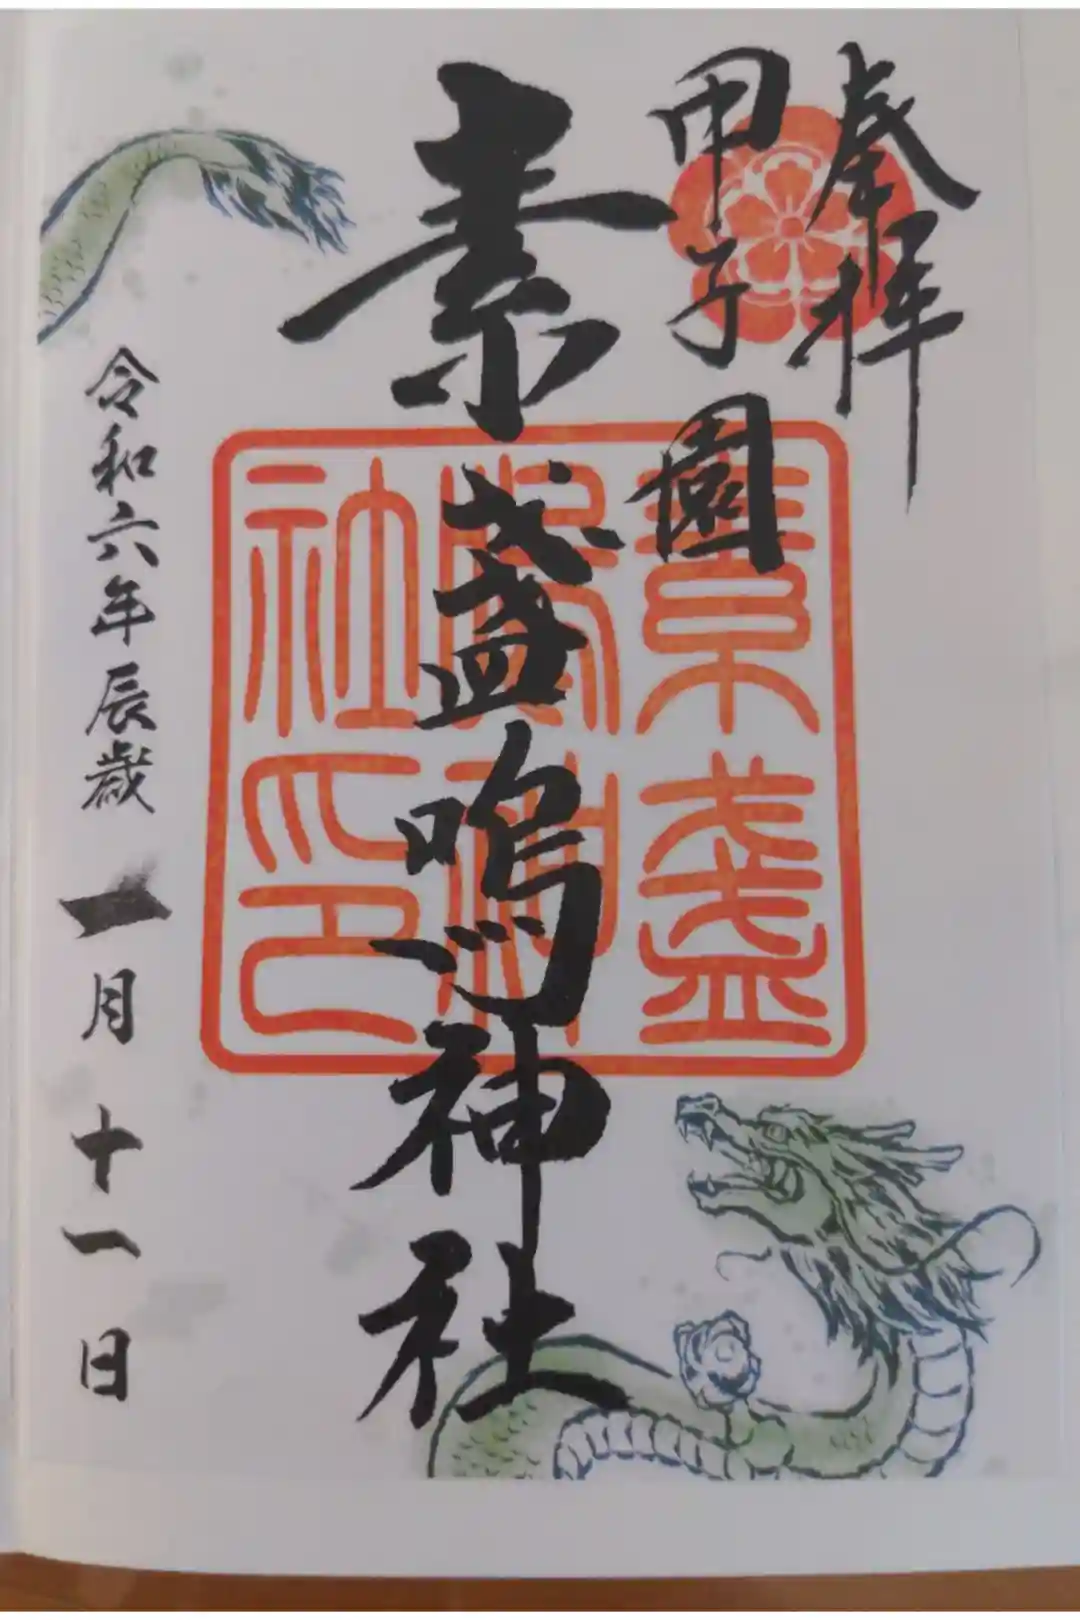 奉拝
甲子園
素盞嗚神社
素盞
嗚神
社印
令和六年辰歳一月十一日